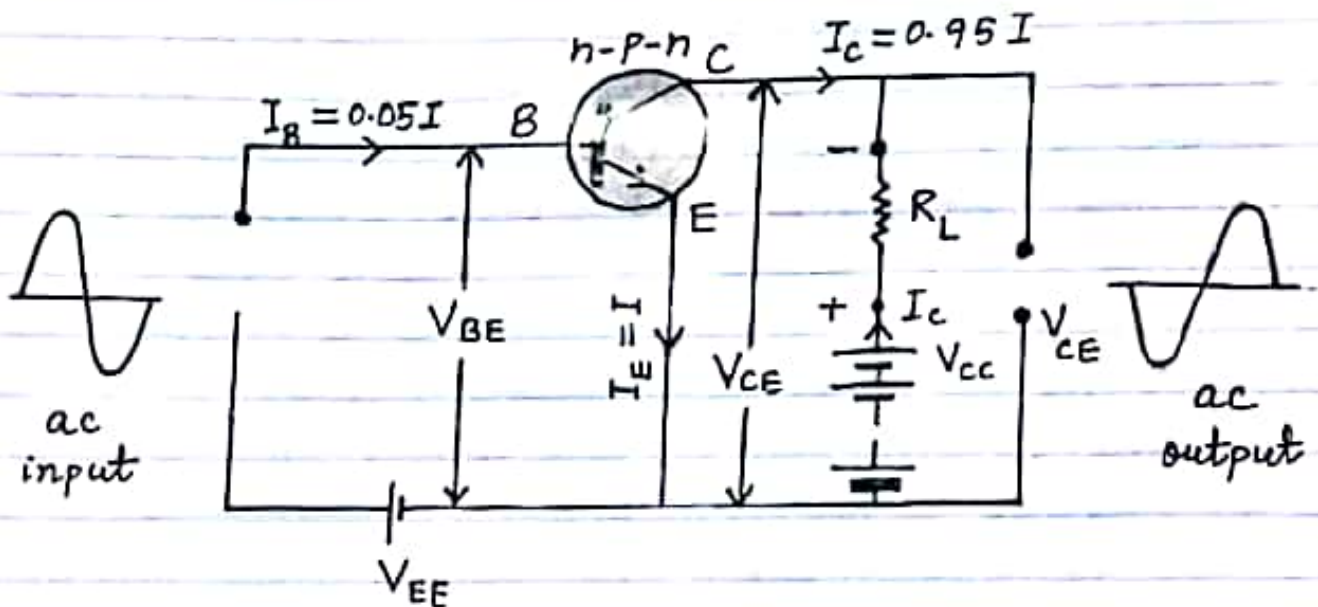 n-p-n
C
I_C = 0.95 I
I_B = 0.05I
B
E
-
R_L
+
I_C
V_BE
I_E = I
V_CE
V_CC
V_CE
ac
input
ac
output
V_EE